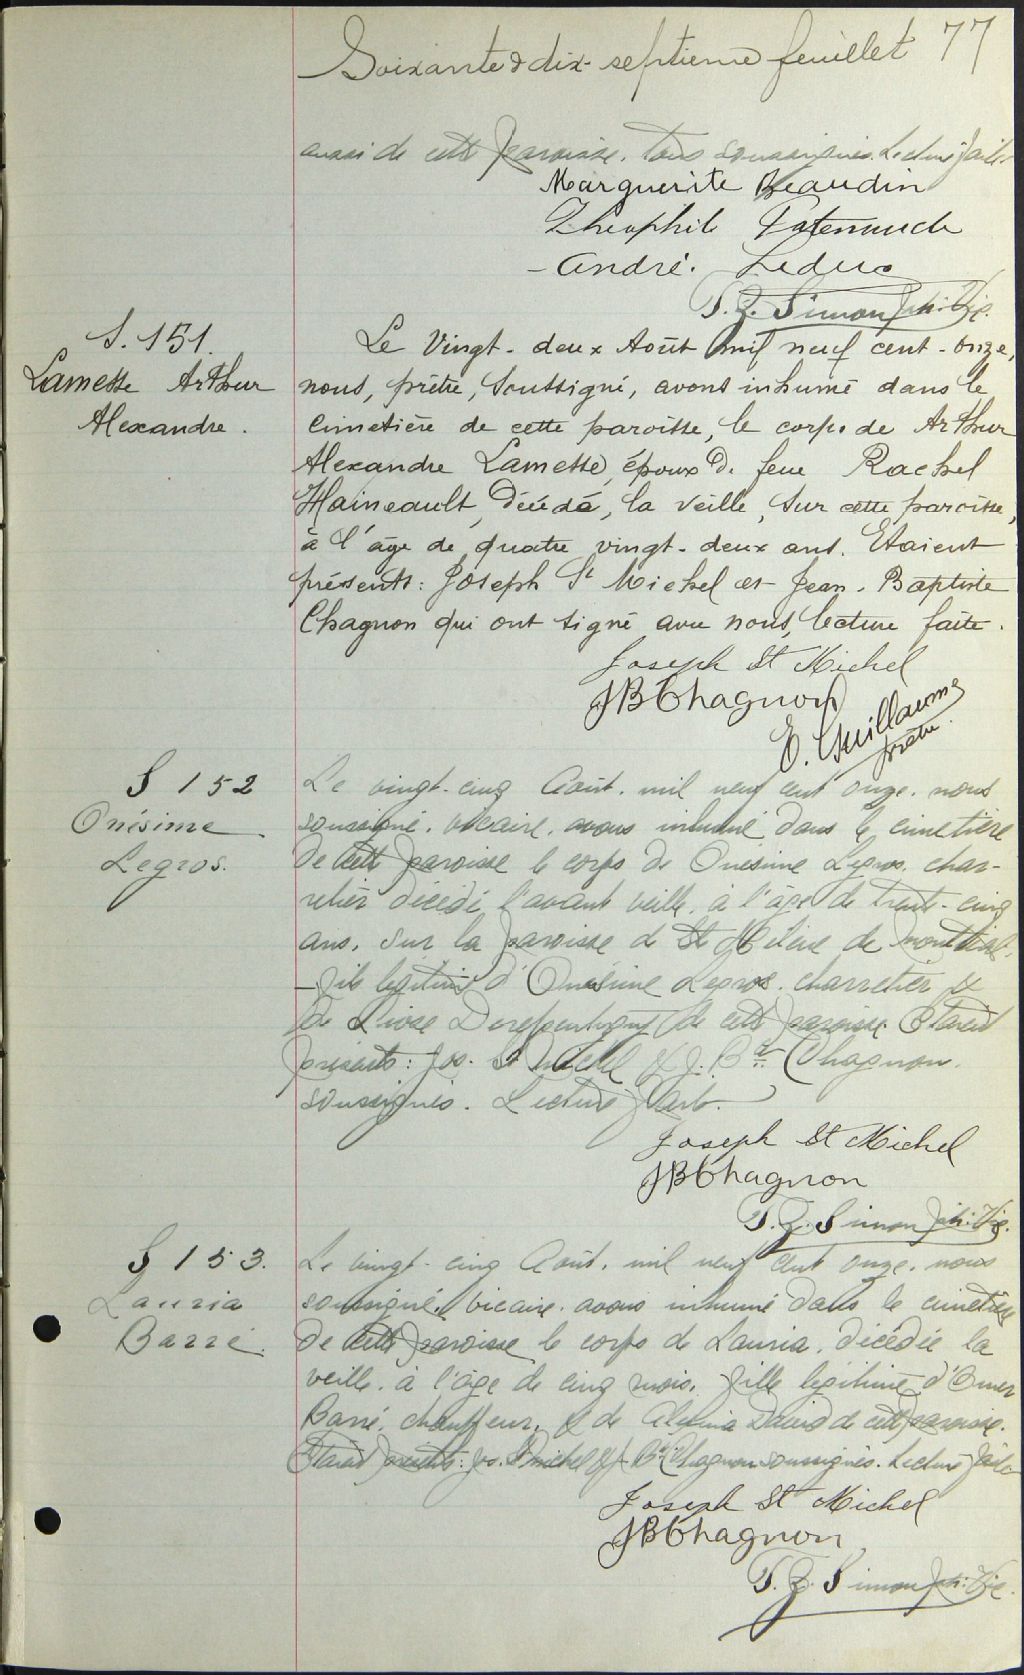 Soixante & dix-septième feuillet 77
aussi de cette paroisse. tous soussignés. Lecture faite
Marguerite Beaudin
Théophile Patenaude
André. Leduc
T. Z. Simon ptr: Vic.
S. 151.
Lamesse Arthur
Alexandre.
Le Vingt-deux Août mil neuf cent-onze,
nous, prêtre, soussigné, avons inhumé dans le
cimetière de cette paroisse, le corps de Arthur
Alexandre Lamesse, époux de feue Rachel
Haineault, décédé, la veille, sur cette paroisse,
à l'âge de quatre vingt-deux ans. Etaient
présents: Joseph St Michel et Jean-Baptiste
Chagnon qui ont signé avec nous, lecture faite.
Joseph St Michel
JB Chagnon
E. Guillaume
prêtre.
S 152
Onésime
Legros.
Le vingt-cinq Août. mil neuf cent onze. nous
soussigné. vicaire. avons inhumé dans le cimetière
de cette paroisse le corps de Onésime Legros. char-
retier décédé l'avant veille. à l'âge de trente-cinq
ans. sur la paroisse de Ste Hélène de Montréal.
fils légitime d'Onésime Legros. charretier &
de de cette paroisse. Etaient
présents: Jos. St Michel & J. Bte Chagnon.
soussignés. Lecture faite.
Joseph St Michel
JB Chagnon
T. Z. Simon ptr: Vic.
S 153.
Lauria
Barré.
Le vingt-cinq Août. mil neuf cent onze. nous
soussigné. vicaire. avons inhumé dans le cimetière
de cette paroisse le corps de Lauria. décédée la
veille. à l'âge de cinq mois. fille légitime d'Omer
Barré. chauffeur. & de David de cette paroisse.
Etaient présents: Jos. St Michel & J. Bte Chagnon soussignés. Lecture faite
Joseph St Michel
JB Chagnon
T. Z. Simon ptr: Vic.